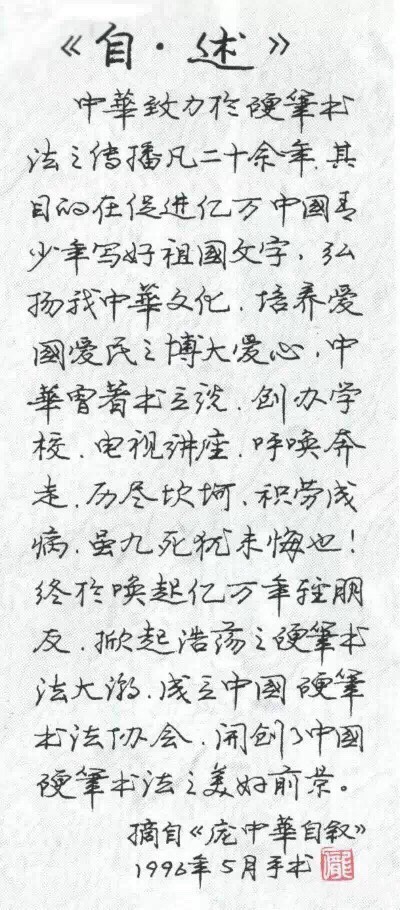 《自·述》
中華致力於硬筆书
法之传播凡二十余年.其
目的在促进亿万中國青
少年写好祖国文字，弘
扬我中華文化.培养爱
國爱民之博大爱心.中
華曾著书立说.创办学
校.电视讲座.呼唤奔
走.历尽坎坷.积劳成
病.虽九死犹未悔也！
终於唤起亿万年轻朋
友.掀起浩荡之硬筆书
法大潮.成立中國硬筆
书法协会.開创了中國
硬筆书法之美好前景。
摘自《庞中華自叙》
1996年5月手书
龐